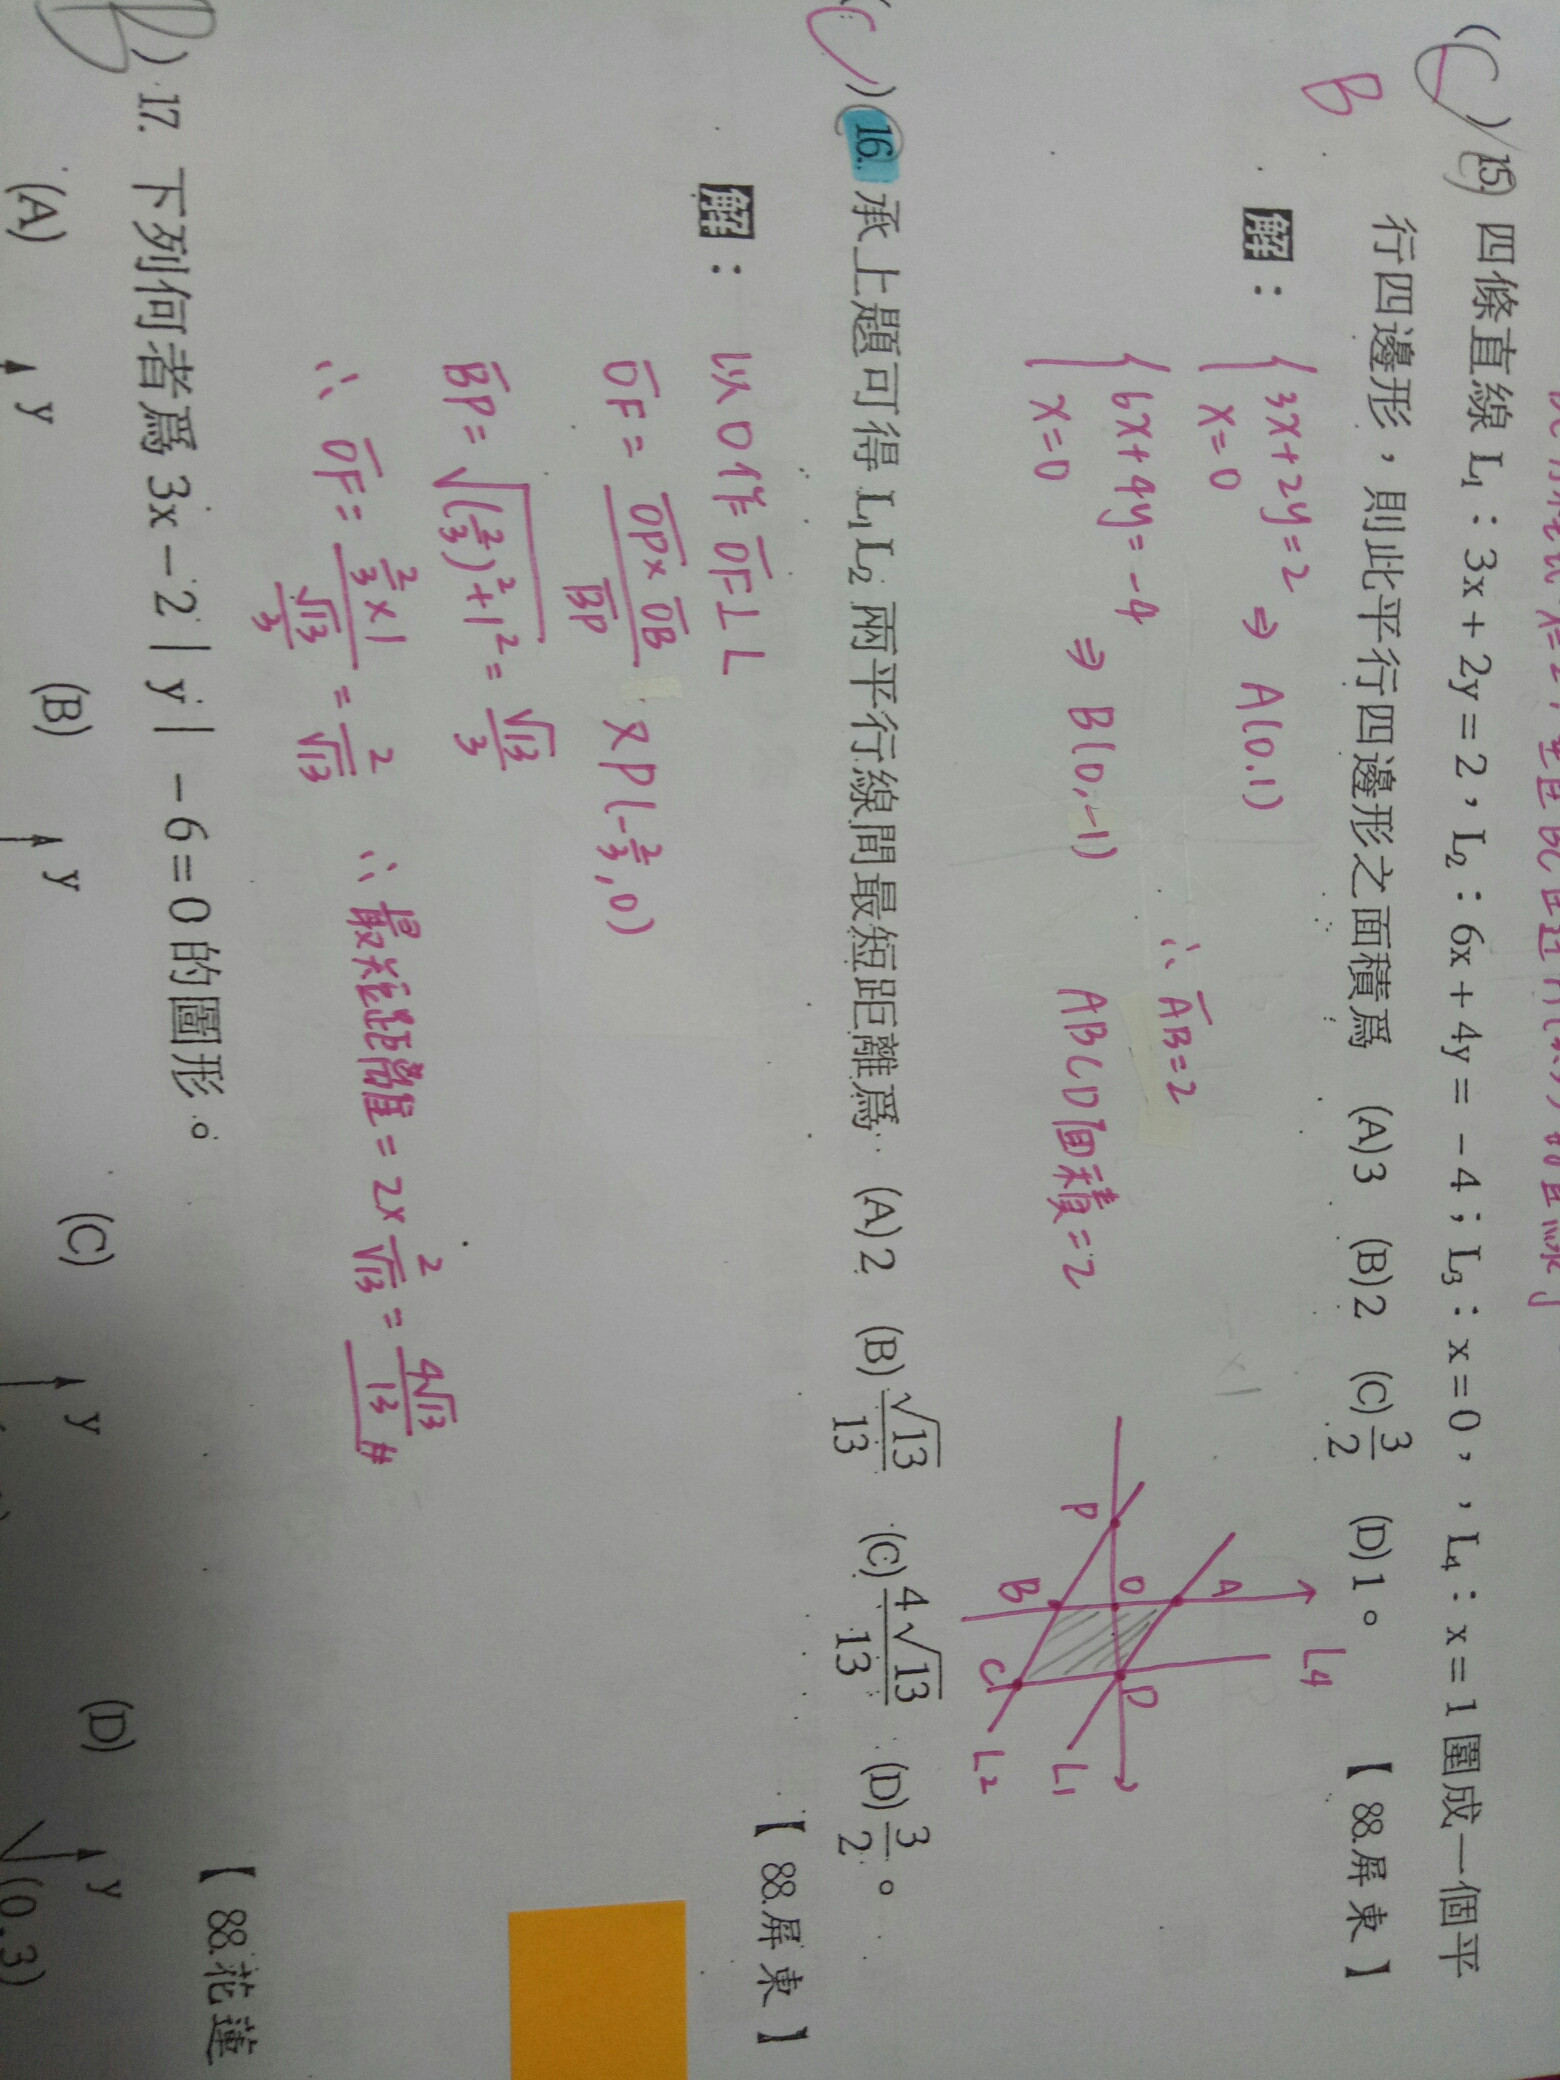 (C) 15. 四條直線 L₁：3x + 2y = 2，L₂：6x + 4y = －4；L₃：x = 0，，L₄：x = 1 圍成一個平
行四邊形，則此平行四邊形之面積爲 (A)3 (B)2 (C)3/2 (D)1。 【88.屏東】
B
解：
{3x+2y=2
x=0 ⇒ A(0.1)
{6x+4y=-4
x=0 ⇒ B(0,-1)
∴ AB=2
ABCD面積=2
L4
A
O
D
P
B
C
L1
L2
(C) 16. 承上題可得 L₁L₂ 兩平行線間最短距離爲 (A)2 (B)√13/13 (C)4√13/13 (D)3/2。
【88.屏東】
解： 以O作OF⊥L
OF = OP×OB/BP 又P(-2/3,0)
BP= √((2/3)²+1²) = √13/3
∴ OF = (2/3×1)/(√13/3) = 2/√13 ∴最短距離=2×2/√13 = 4√13/13 #
(B) 17. 下列何者爲 3x－2｜y｜－6 = 0 的圖形。 【88.花蓮
(A) (B) (C) (D)
y y y y
(0,3)